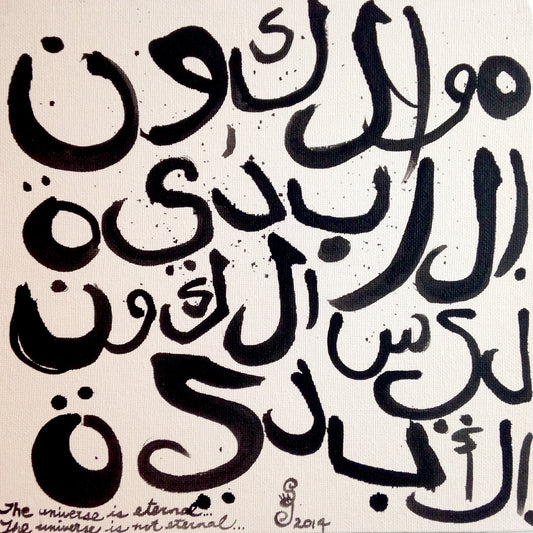 هو الكون
الربدية
ليس الكون
الأبدية
The universe is eternal...
The universe is not eternal...
2014